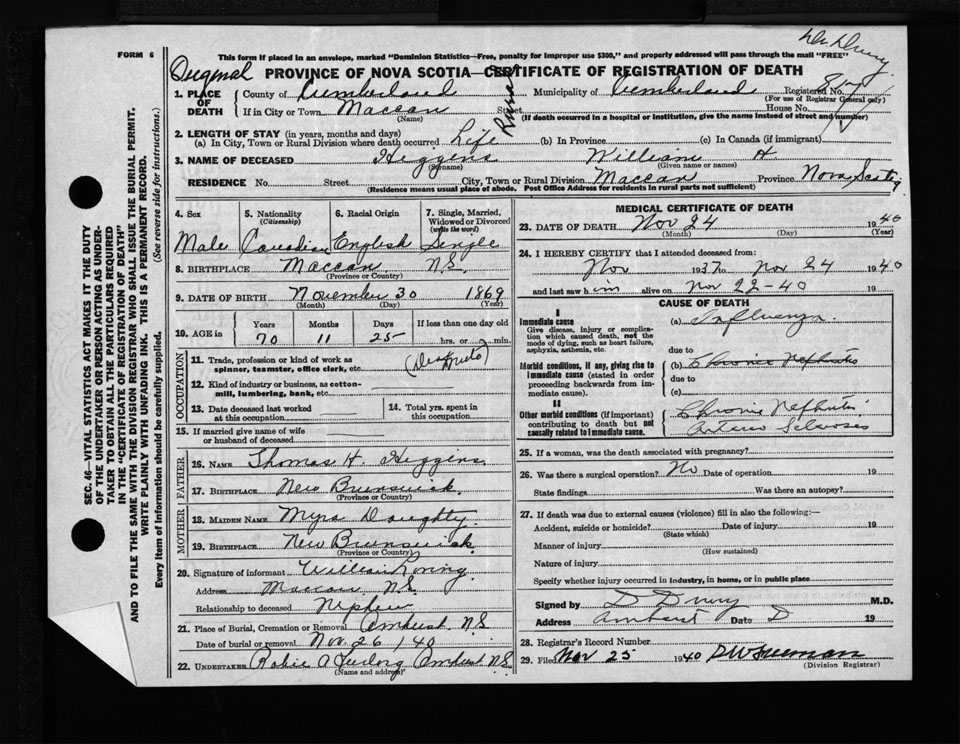 FORM 6
This form if placed in an envelope, marked "Dominion Statistics—Free, penalty for improper use $300," and properly addressed will pass through the mail "FREE"
Original PROVINCE OF NOVA SCOTIA—CERTIFICATE OF REGISTRATION OF DEATH
1. PLACE OF DEATH County of Cumberland Municipality of Cumberland Registered No.
(For use of Registrar General only)
If in City or Town Maccan Street Rural House No.
(Name) (If death occurred in a hospital or institution, give the name instead of street and number)
2. LENGTH OF STAY (in years, months and days)
(a) In City, Town or Rural Division where death occurred Life (b) In Province (c) In Canada (if immigrant)
3. NAME OF DECEASED Higgens William H
(Surname) (Given name or names)
RESIDENCE No. Street City, Town or Rural Division Maccan Province Nova Scotia
(Residence means usual place of abode. Post Office Address for residents in rural parts not sufficient)
4. Sex 5. Nationality (Citizenship) 6. Racial Origin 7. Single, Married, Widowed or Divorced (write the word)
Male Canadian English Single
8. BIRTHPLACE Maccan N.S.
(Province or Country)
9. DATE OF BIRTH November 30 1869
(Month) (Day) (Year)
10. AGE in Years Months Days If less than one day old
70 11 25 hrs. or min.
OCCUPATION
11. Trade, profession or kind of work as spinner, teamster, office clerk, etc. (Deaf Mute)
12. Kind of industry or business, as cotton-mill, lumbering, bank, etc.
13. Date deceased last worked at this occupation
14. Total yrs. spent in this occupation
15. If married give name of wife or husband of deceased
FATHER
16. NAME Thomas H. Higgens
17. BIRTHPLACE New Brunswick
(Province or Country)
MOTHER
18. MAIDEN NAME Myra Doughty
19. BIRTHPLACE New Brunswick
(Province or Country)
20. Signature of informant William
Address Maccan N.S.
Relationship to deceased Nephew
21. Place of Burial, Cremation or Removal Amherst N.S.
Date of burial or removal Nov. 26 /40
22. UNDERTAKER A Furlong Amherst N.S.
(Name and address)
MEDICAL CERTIFICATE OF DEATH
23. DATE OF DEATH Nov 24 1940
(Month) (Day) (Year)
24. I HEREBY CERTIFY that I attended deceased from:
Nov 1937 to Nov 24 1940
and last saw him alive on Nov 22-40 19
CAUSE OF DEATH
I
Immediate cause (a) Influenza
Give disease, injury or complication which caused death, not the mode of dying, such as heart failure, asphyxia, asthenia, etc.
due to
Morbid conditions, if any, giving rise to immediate cause (stated in order proceeding backwards from immediate cause). (b) Chronic Nefhritis
due to
(c)
II
Other morbid conditions (if important) contributing to death but not causally related to immediate cause. Chronic Nefhritis
Arterio Scleroses
25. If a woman, was the death associated with pregnancy?
26. Was there a surgical operation? No Date of operation 19
State findings Was there an autopsy?
27. If death was due to external causes (violence) fill in also the following:—
Accident, suicide or homicide? Date of injury 19
(State which)
Manner of injury
(How sustained)
Nature of injury
Specify whether injury occurred in industry, in home, or in public place
Signed by D Drury M.D.
Address Amherst Date 19
28. Registrar's Record Number
29. Filed Nov 25 1940
(Division Registrar)
SEC. 46—VITAL STATISTICS ACT MAKES IT THE DUTY
OF THE UNDERTAKER OR PERSON ACTING AS UNDER-
TAKER TO OBTAIN ALL THE PARTICULARS REQUIRED
IN THE "CERTIFICATE OF REGISTRATION OF DEATH"
AND TO FILE THE SAME WITH THE DIVISION REGISTRAR WHO SHALL ISSUE THE BURIAL PERMIT.
WRITE PLAINLY WITH UNFADING INK. THIS IS A PERMANENT RECORD.
Every item of Information should be carefully supplied. (See reverse side for instructions.)